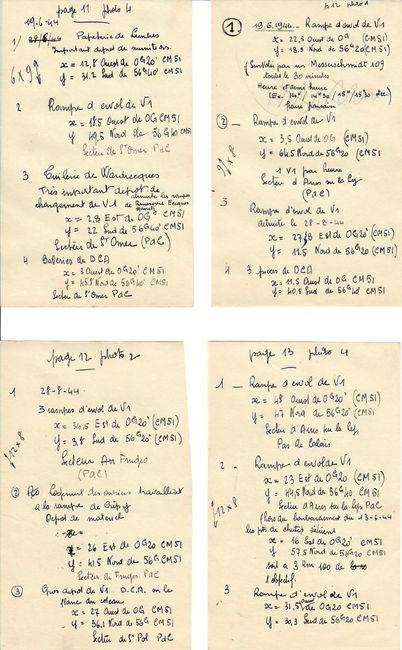 page 11 photo 4
19-6-44
1) Papeterie de Lumbres
Important depot de munitions.
x = 12,8 Ouest de 0G20' CM51
y = 31,2 Sud de 56G40' CM51
6x9
2 Rampe d'envol de V1
x = 18.5 Ouest de 0G20' CM51
y = 49,5 Nord de 56G40' CM51
Secteur de St Omer PdC
3 Tuilerie de Wardrecques
Très important depot de
chargement de V1
x = 2,8 Est de 0G CM51
y = 22 Sud de 56G40' CM51
Secteur de St Omer (PdC)
4 Batteries de DCA
x = 3 Ouest de 0G20' CM51
y = 45.8 Nord de 56G40' CM51
Secteur de St Omer PdC
p 12 photo
1. 19.6.1944 - Rampe d'envol de V1
x = 22,5 Ouest de 0G (CM51)
y = 18.9 Nord de 56G20' (CM51)
Survolée par un Messerschmidt 109
toute le 30 minutes
Heure et demi heure
(Ex. 14H 14H30 / 15H / 15H30 etc)
heure française
2 - Rampe d'envol de V1
x = 3,5 Ouest de 0G (CM51)
y = 64,5 Nord de 56G20 (CM51)
1 V1 par heure
Secteur d'Aires sur la Lys
(PdC)
3 Rampe d'envol de V1
detruite le 28-8-44
x = 27,8 Est de 0G20' (CM51)
y = 11.5 Nord de 56G20' (CM51)
4 3 pieces de DCA
x = 11.5 Ouest de 0G CM51
y = 40,5 Sud de 56G40' CM51
page 12 photo 2
1 28-8-44
3 rampes d'envol de V1
x = 36,5 Est de 0G20' (CM51)
y = 3,8 Sud de 56G20' (CM51)
12x8
Secteur Aire Fruges
(PdC)
2 Logement des ouvriers travaillant
a la rampe de Crépy
Depot de materiel
x = 26 Est de 0G20 CM51
y = 41.5 Nord de 56G CM51
Secteur de Fruges PdC
3 Gros depot de V1. D.C.A. sur le
flanc du coteau
x = 27 Ouest de 0G CM51
y = 36,1 Nord de 56G CM51
Secteur de St Pol PdC
page 13 photo 4
1 - Rampe d'envol de V1
x = 48 Ouest de 0G20' (CM51)
y = 47 Nord de 56G20' (CM51)
Secteur d'Aires sur la Lys,
Pas de Calais
2 - Rampe d'envol de V1
x = 23 Est de 0G20' (CM51)
y = 44,5 Nord de 56G20 CM51
12x8
Secteur d'Aires sur la Lys PdC
(Lors du bombardement du 13-6-44
les pts de chutes étaient
x = 16 Est de 0G20' CM51
y = 57.5 Nord de 56G20 CM51
soit a 3 km 100 de
l'objectif.
3 Rampe d'envol de V1
x = 31,5 Ouest de 0G20 CM51
y = 30,3 Sud de 56G20 CM51